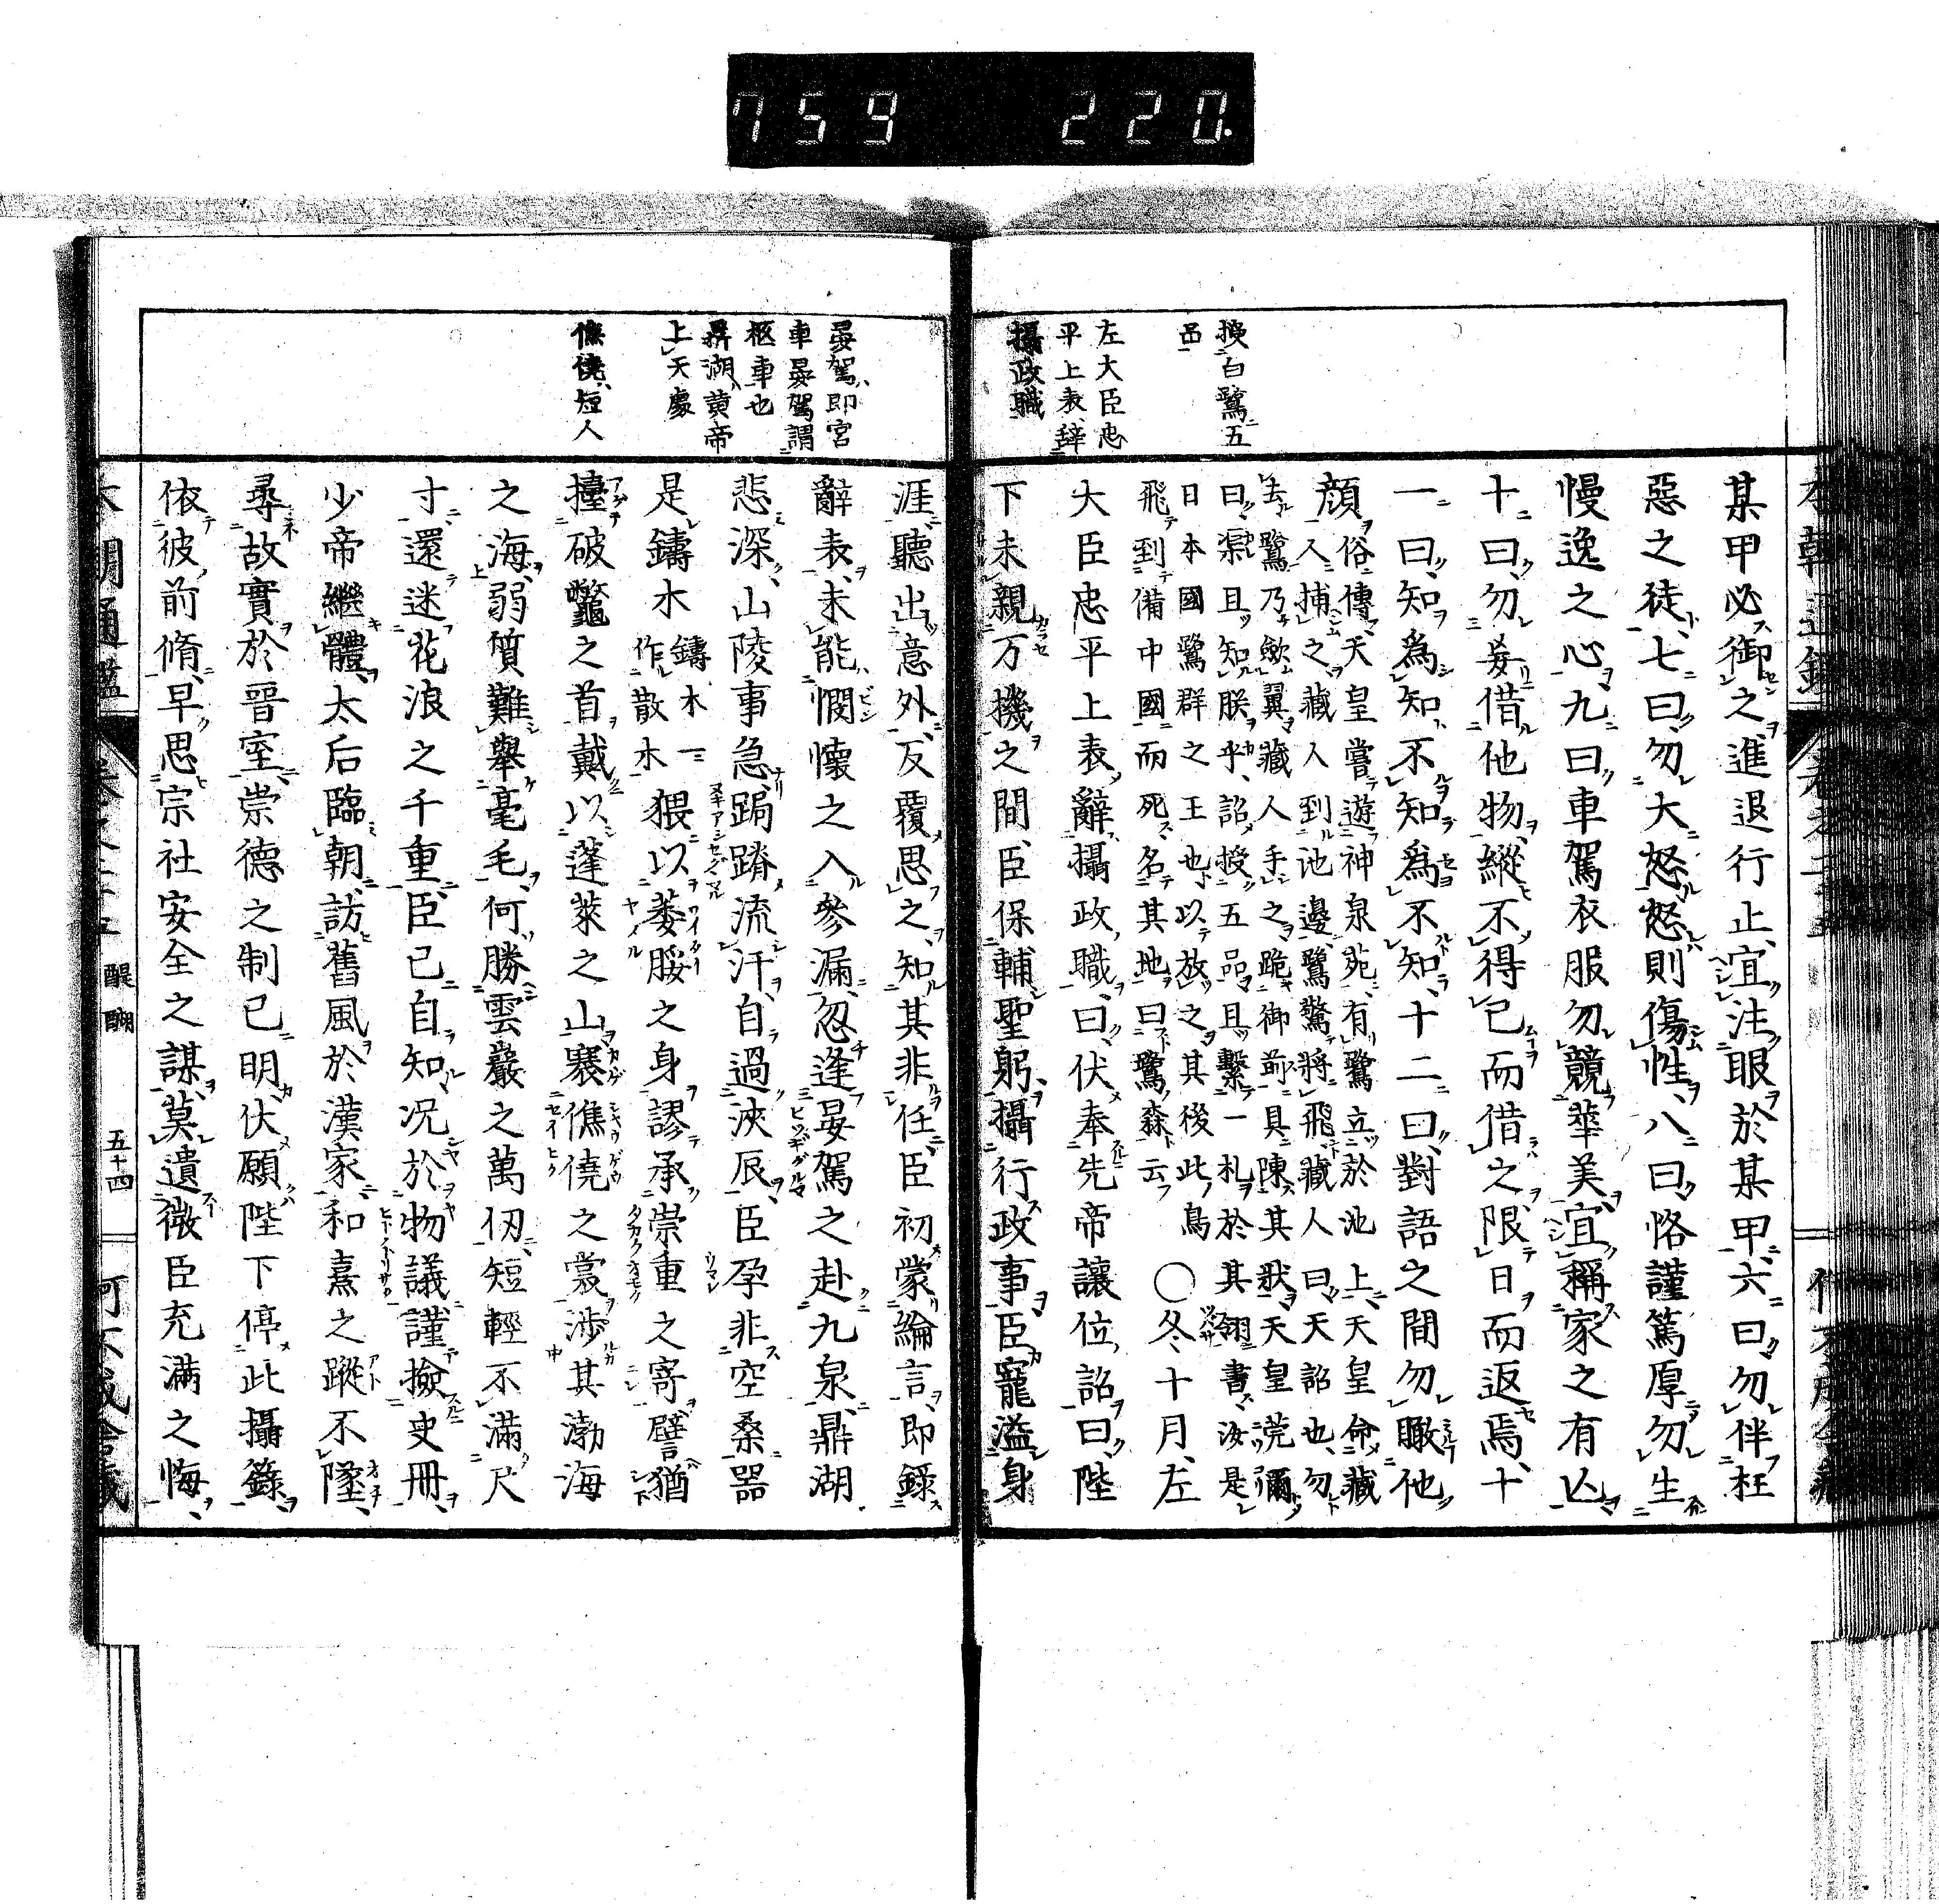 759 220.
授白鷺五
品
左大臣忠
平上表辞
攝政職
某甲必御之進退行止宜注眼於某甲六曰勿伴枉
惡之徒七曰勿大怒怒則傷性八曰恪謹篤厚勿生
慢逸之心九曰車駕衣服勿競華美宜稱家之有亾
十曰勿妄借他物縱不得已而借之限日而返焉十
一曰知爲知不知爲不知十二曰對語之間勿瞰他
顔
俗傳天皇嘗遊神泉苑有鷺立於池上天皇命藏
人捕之藏人到池邊鷺驚將飛藏人曰天詔也勿
去鷺乃歛翼藏人手之跪御前具陳其狀天皇莞爾
曰渠且知朕乎詔授五品且繫一札於其翎書汝是
日本國鷺群之王也以放之其後此鳥
飛到備中國而死名其地曰鷺森云
○冬十月左
大臣忠平上表辭攝政職曰伏奉先帝讓位詔曰陛
下未親万機之間臣保輔聖躬攝行政事臣寵溢身
晏駕即宮
車晏駕謂
柩車也
鼎湖黄帝
上天處
僬僥短人
涯聽出意外反覆思之知其非任臣初蒙綸言即錄
辭表未能憫懷之入參漏忽逢晏駕之赴九泉鼎湖
悲深山陵事急跼蹐流汗自過浹辰臣孕非空桑器
是鑄木
鑄木一
作散木
猥以萎腇之身謬承崇重之寄譬猶
擡破鼈之首戴以蓬萊之山褰僬僥之裳渉其渤海
之海弱質難舉毫毛何勝雲巖之萬仞短輕不滿尺
寸還迷花浪之千重臣已自知况於物議謹撿史冊
少帝繼體太后臨朝訪舊風於漢家和熹之蹤不墜
尋故實於晋室崇德之制已明伏願陛下停此攝籙
依彼前脩早思宗社安全之謀莫遺微臣充滿之悔
本朝通鑑
醍醐
五十四